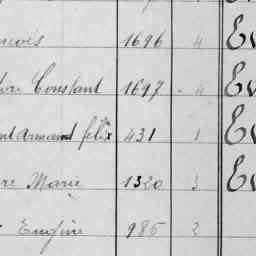 1696 4 Ev
Constant 1697 4 Ev
Armand felix 431 1 Ev
re Marie 1320 3 Ev
Eugène 985 2